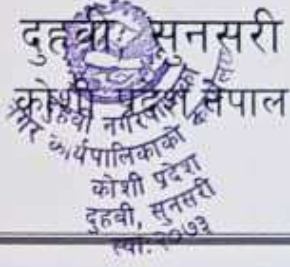 दुहवी, सुनसरी
कोशी प्रदेश नेपाल
दुहवी नगरपालिका
नगर कार्यपालिकाको कार्यालय
कोशी प्रदेश
दुहवी, सुनसरी
स्था: २०७३